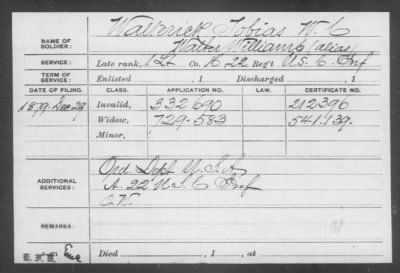 NAME OF SOLDIER: Walterick Tobias W. C
Walter Williams (alias)
SERVICE: Late rank, 1 Lt Co. K 22 Reg't U.S. C. Inf
TERM OF SERVICE: Enlisted , 1 Discharged , 1
DATE OF FILING. CLASS. APPLICATION NO. LAW. CERTIFICATE NO.
1879 Dec 29 Invalid, 332690 212396
Widow, 729-583 541.139.
Minor,
ADDITIONAL SERVICES: Ord. Dept U.S.A.
A. 22 U.S. C Inf
REMARKS:
Died , 1 , at